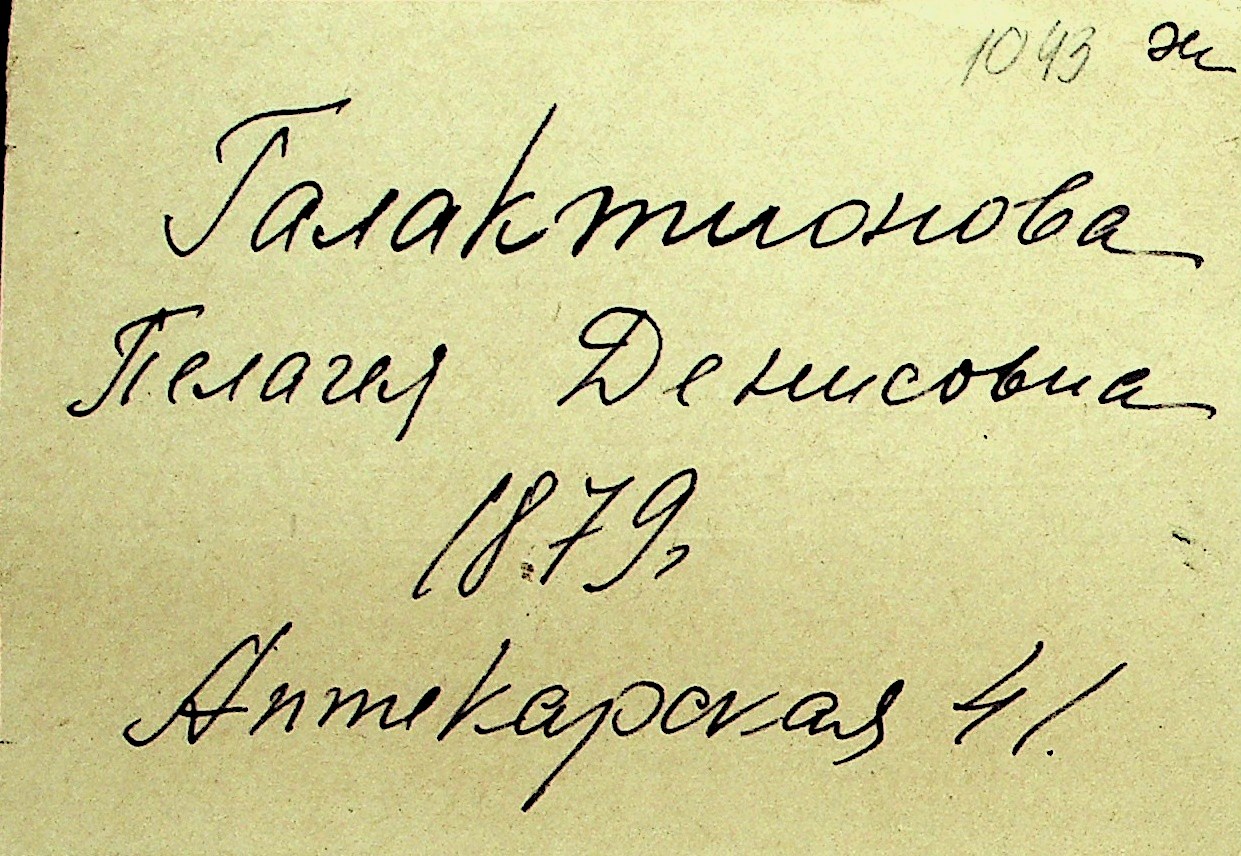 1043 ж
Галактионова
Пелагея Денисовна
1879,
Аптекарская 41.